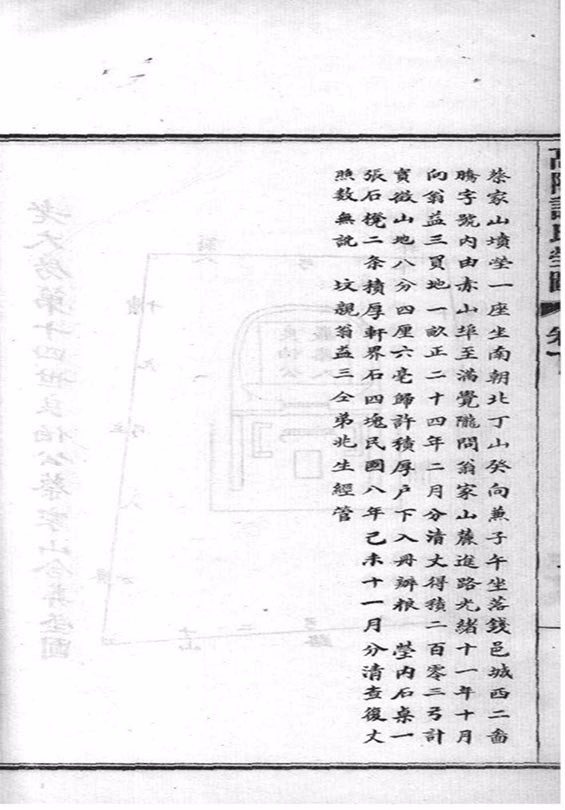 高陽許氏塋圖　卷下
蔡家山墳塋一座坐南朝北丁山癸向兼子午坐落錢邑城西二啚
騰字號內由赤山埠至滿覺隴問翁家山蔴進路光緒十一年十月
向翁益三買地一畝正二十四年二月分清丈得積二百零三弓計
實徵山地八分四厘六毫歸許積厚戶下入冊辦粮　塋內石桌一
張石櫈二条積厚軒界石四塊民國八年己未十一月分清查復丈
照数無訛　坟親翁益三仝弟兆生經管